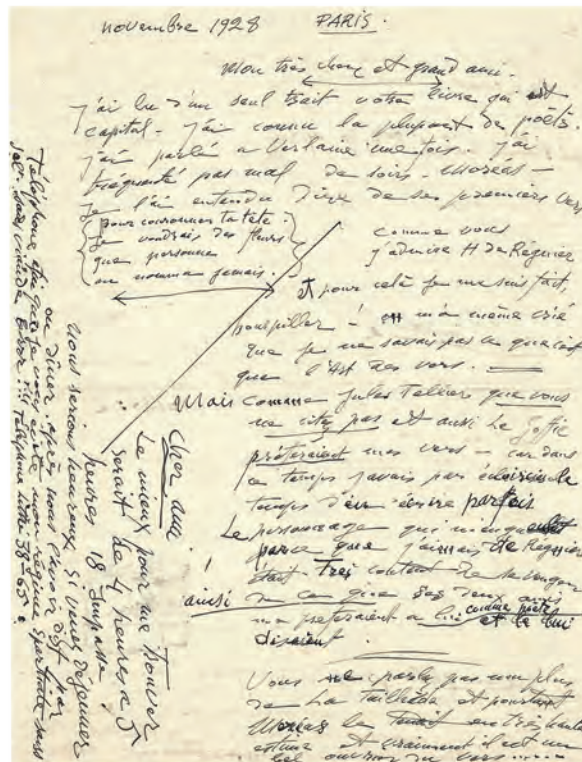 novembre 1928 PARIS.
Mon très cher et grand ami.
j'ai lu d'un seul trait votre livre qui est
capital - j'ai connu la plupart des poëts
j'ai parlé a Verlaine une fois. j'ai
fréquenté pas mal de soirs. Moréas -
je l'ai entendu dire de ses premiers vers
pour couronner ta tête
je voudrais des fleurs
que personne
ne nomma jamais.
comme vous
j'admire H de Régnier
et pour celà je me suis fait,
houspiller - on m'a même crié
que je ne savais pas ce que c'est
que l'Art des vers.
Mais comme Jules Tellier que vous
ne citez pas et aussi Le Goffic
mes vers - car dans
ce temps j'avais pas
temps d'en écrire parfois
Le personnage qui
parce que j'aimais de Régnier
était très content de se venger
ainsi
de ce que ses deux amis
comme poëte
et le lui
disaient.
Vous ne parlez pas non plus
de La Tailhède et pourtant
Moréas le tenait en très haute
estime et vraiment il est un
bel ouvrier du vers.....
cher ami
Le mieux pour me trouver
serait de 4 heures a 5
heures 18 Impasse
nous serions heureux si vous déjeuner
ou dîner. après nous l'avoir dit par
Téléphone